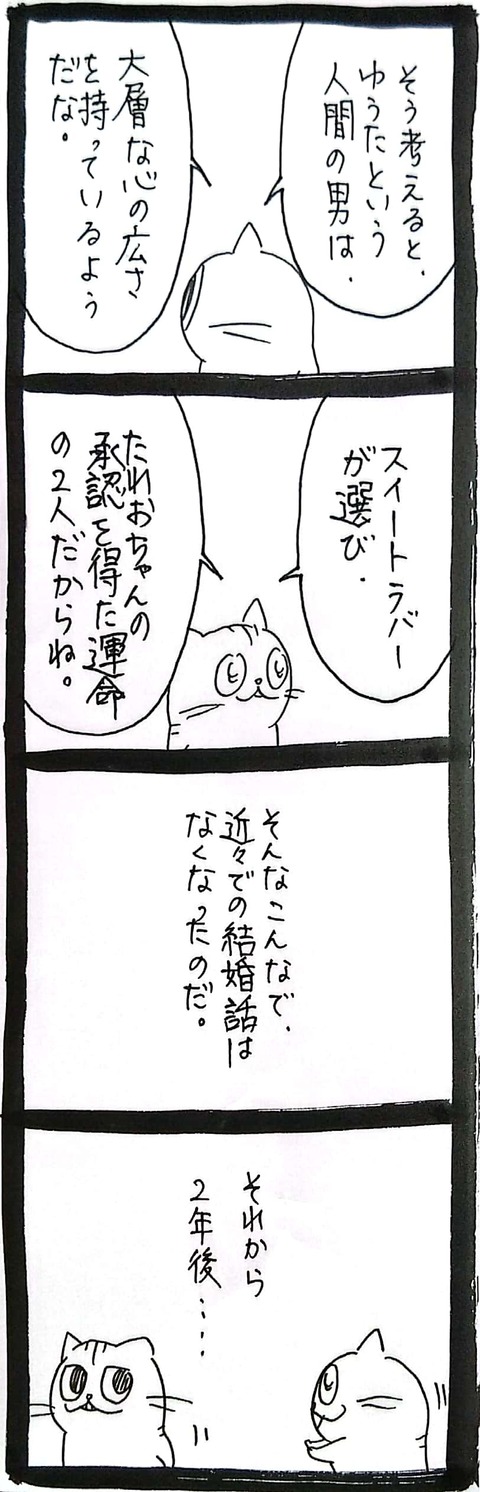 そう考えると、
ゆうたという
人間の男は、
大層な心の広さ
を持っているよう
だな。
スイートラバー
が選び、
たれおちゃんの
承認を得た運命
の2人だからね。
そんなこんなで、
近々での結婚話は
なくなったのだ。
それから
2年後‥‥